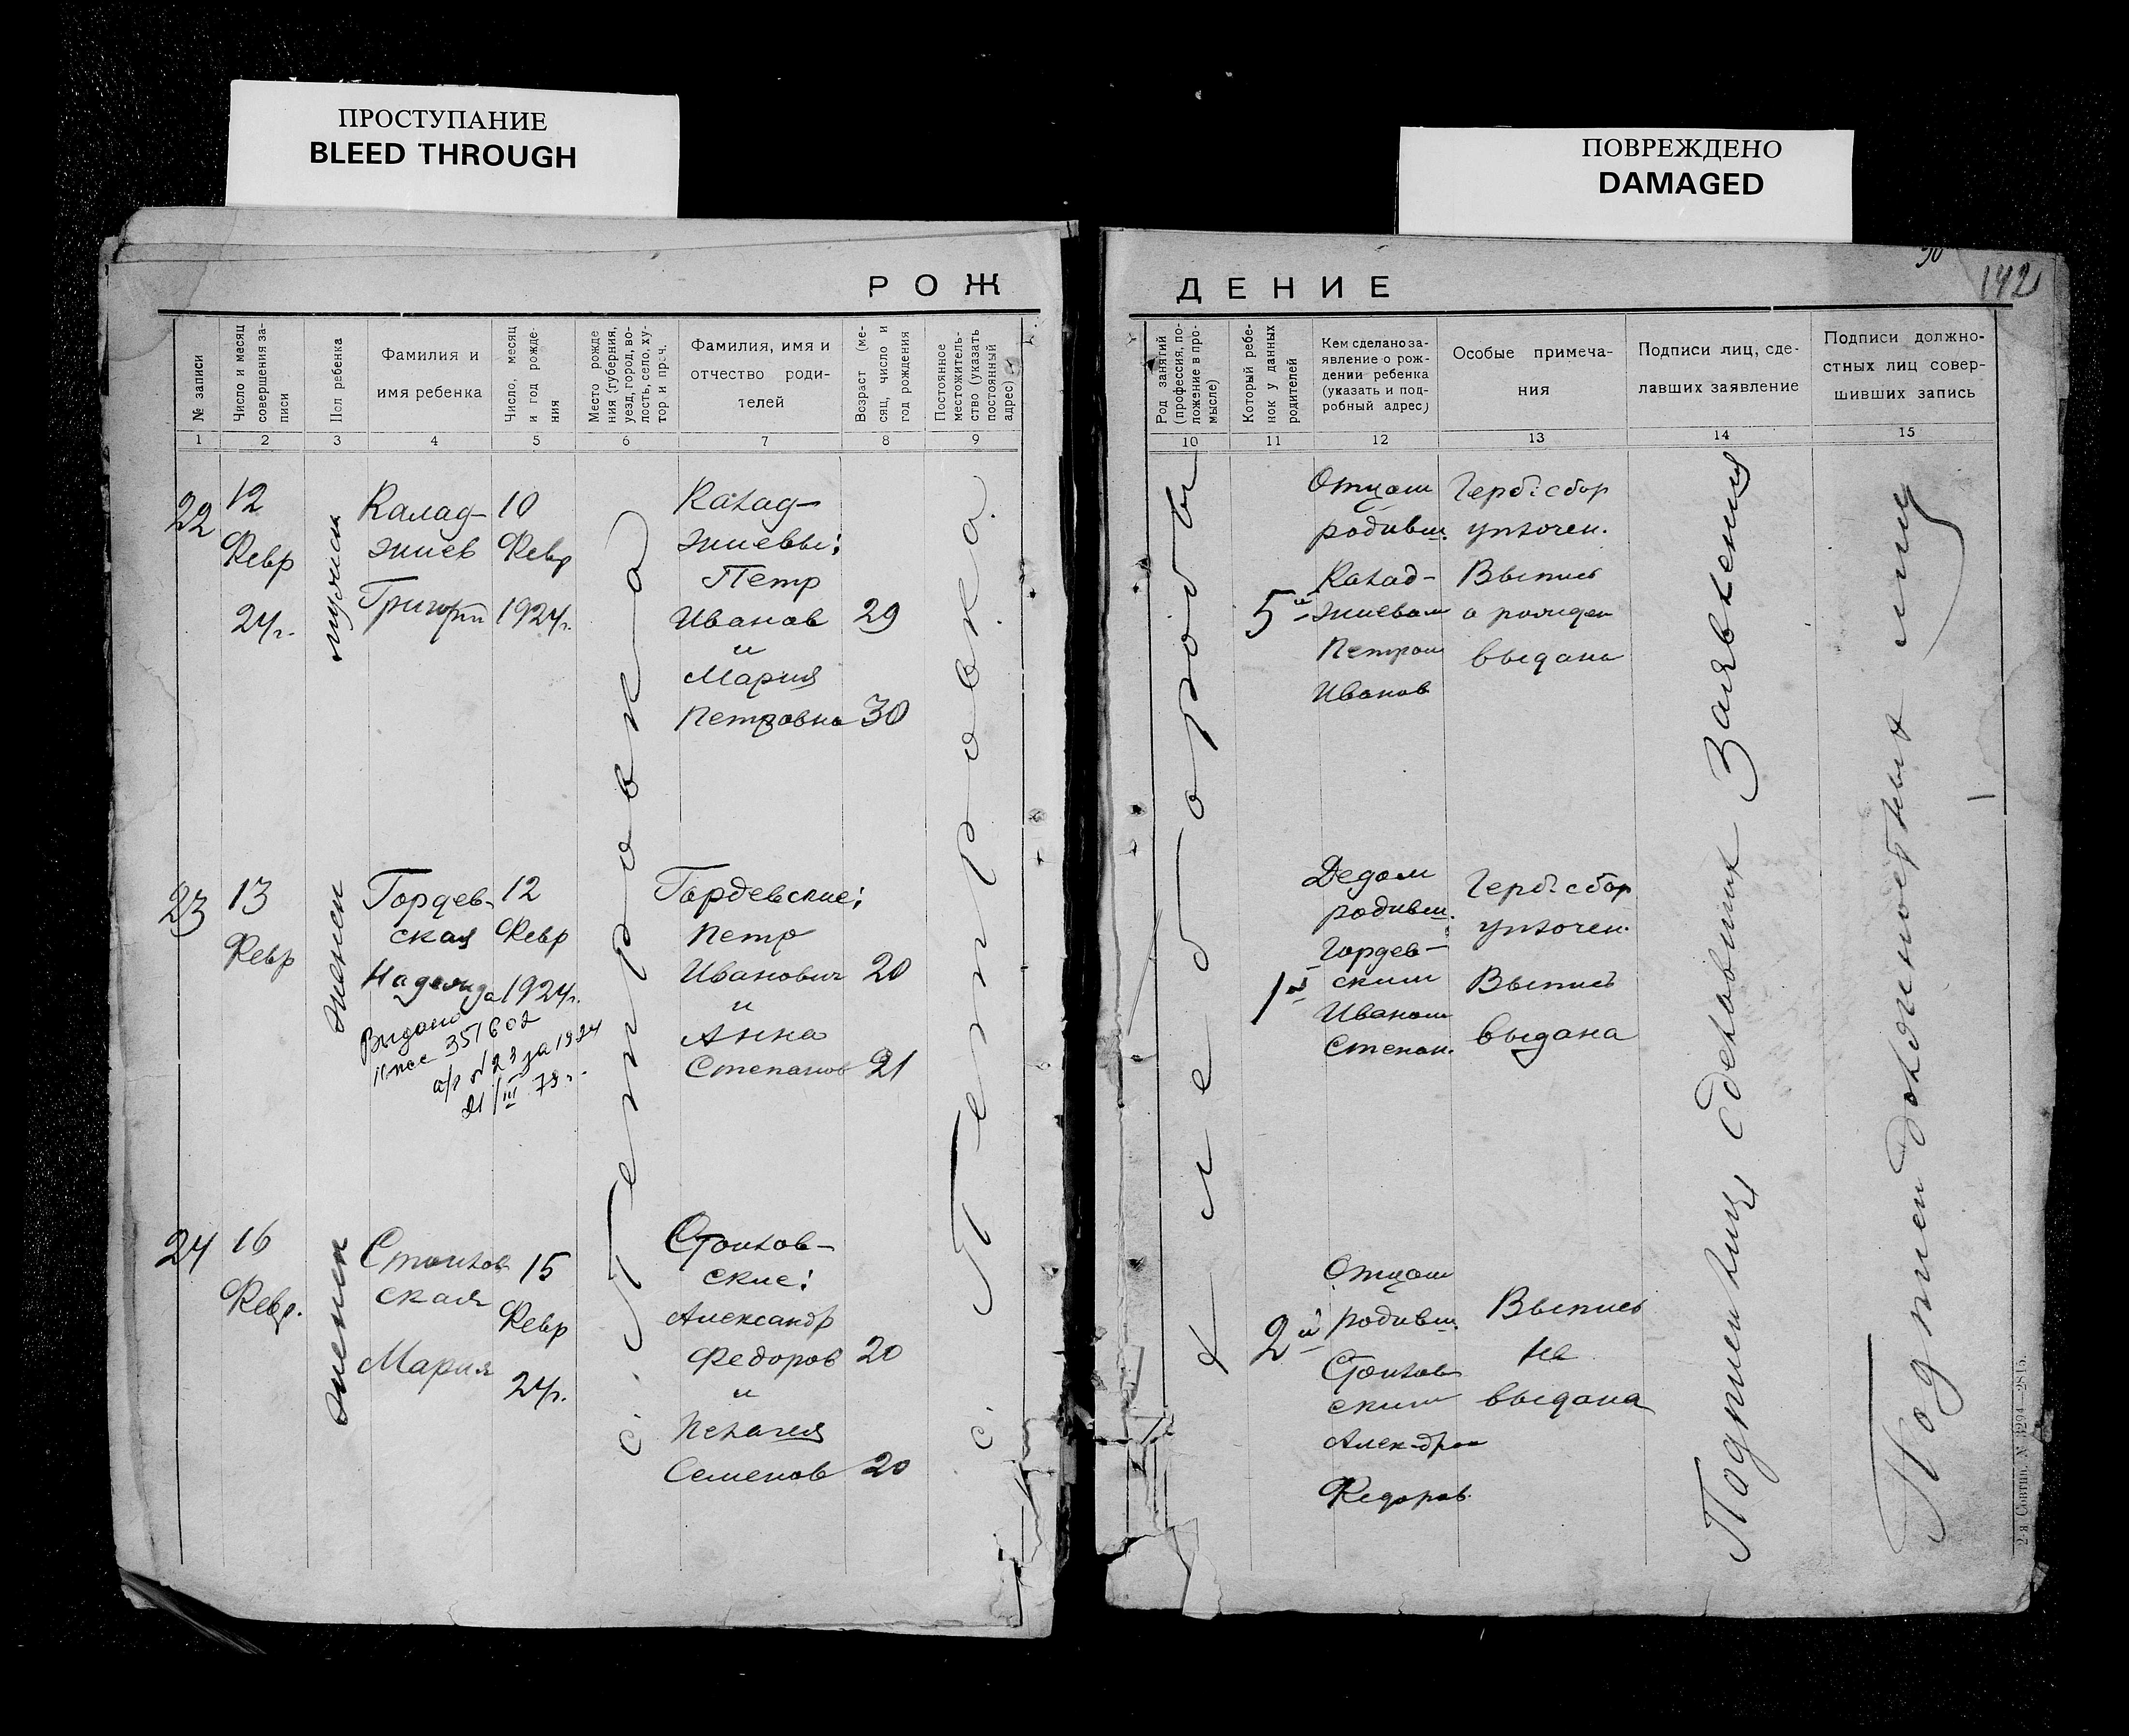 ПРОСТУПАНИЕ
BLEED THROUGH
ПОВРЕЖДЕНО
DAMAGED
142
РОЖ
ДЕНИЕ
№ записи
Число и месяц
совершения за-
писи
Пол ребенка
Фамилия и
имя ребенка
Число, месяц
и год рожде-
ния
Место рожде
ния (губерния,
уезд, город, во-
лость, село, ху-
тор и проч.
Фамилия, имя и
отчество роди-
телей
Возраст (ме-
сяц, число и
год рождения
Постоянное
местожитель-
ство (указать
постоянный
адрес)
Род занятий
(профессия, по-
ложение в про-
мысле)
Который ребе-
нок у данных
родителей
Кем сделано за-
явление о рож-
дении ребенка
(указать и под-
робный адрес)
Особые примеча-
ния
Подписи лиц, сде-
лавших заявление
Подписи должно-
стных лиц совер-
шивших запись
1 2 3 4 5 6 7 8 9
10 11 12 13 14 15
22
12
Февр
24г.
мужск
Калад-
жиев
Григорий
10
Февр
1924г.
Калад-
жиевы:
Петр
Иванов 29
и
Мария
Петровна 30
5й
Отцом
родивш.
Калад-
жиевым
Петром
Иванов
Герб. сбор
уплочен.
Выпись
о рожден
выдана
23
13
Февр
женск
Гордев-
ская
Надежда
12
Февр
1924г.
Выдано
351602
а/з № 23 за 1924
21/III 79г.
Гордевские:
Петр
Иванович 20
и
Анна
Степанов 21
1й
Дедом
родивш.
Гордев-
ским
Иваном
Степан.
Герб. сбор
уплочен.
Выпись
выдана
24
16
Февр.
женск
Стоилов
ская
Мария
15
Февр
24г.
Стоилов-
ские:
Александр
Федоров 20
и
Пелагея
Семенов 20
2й
Отцом
родивш.
Стоилов
ским
Алек-дром
Федоров.
Выпись
не
выдана
с. Петровка
с. Петровка.
хлебороб
Подписи лиц сделавших заявления
Подписи должностных лиц
2-я Совтип. № 3294—2815.